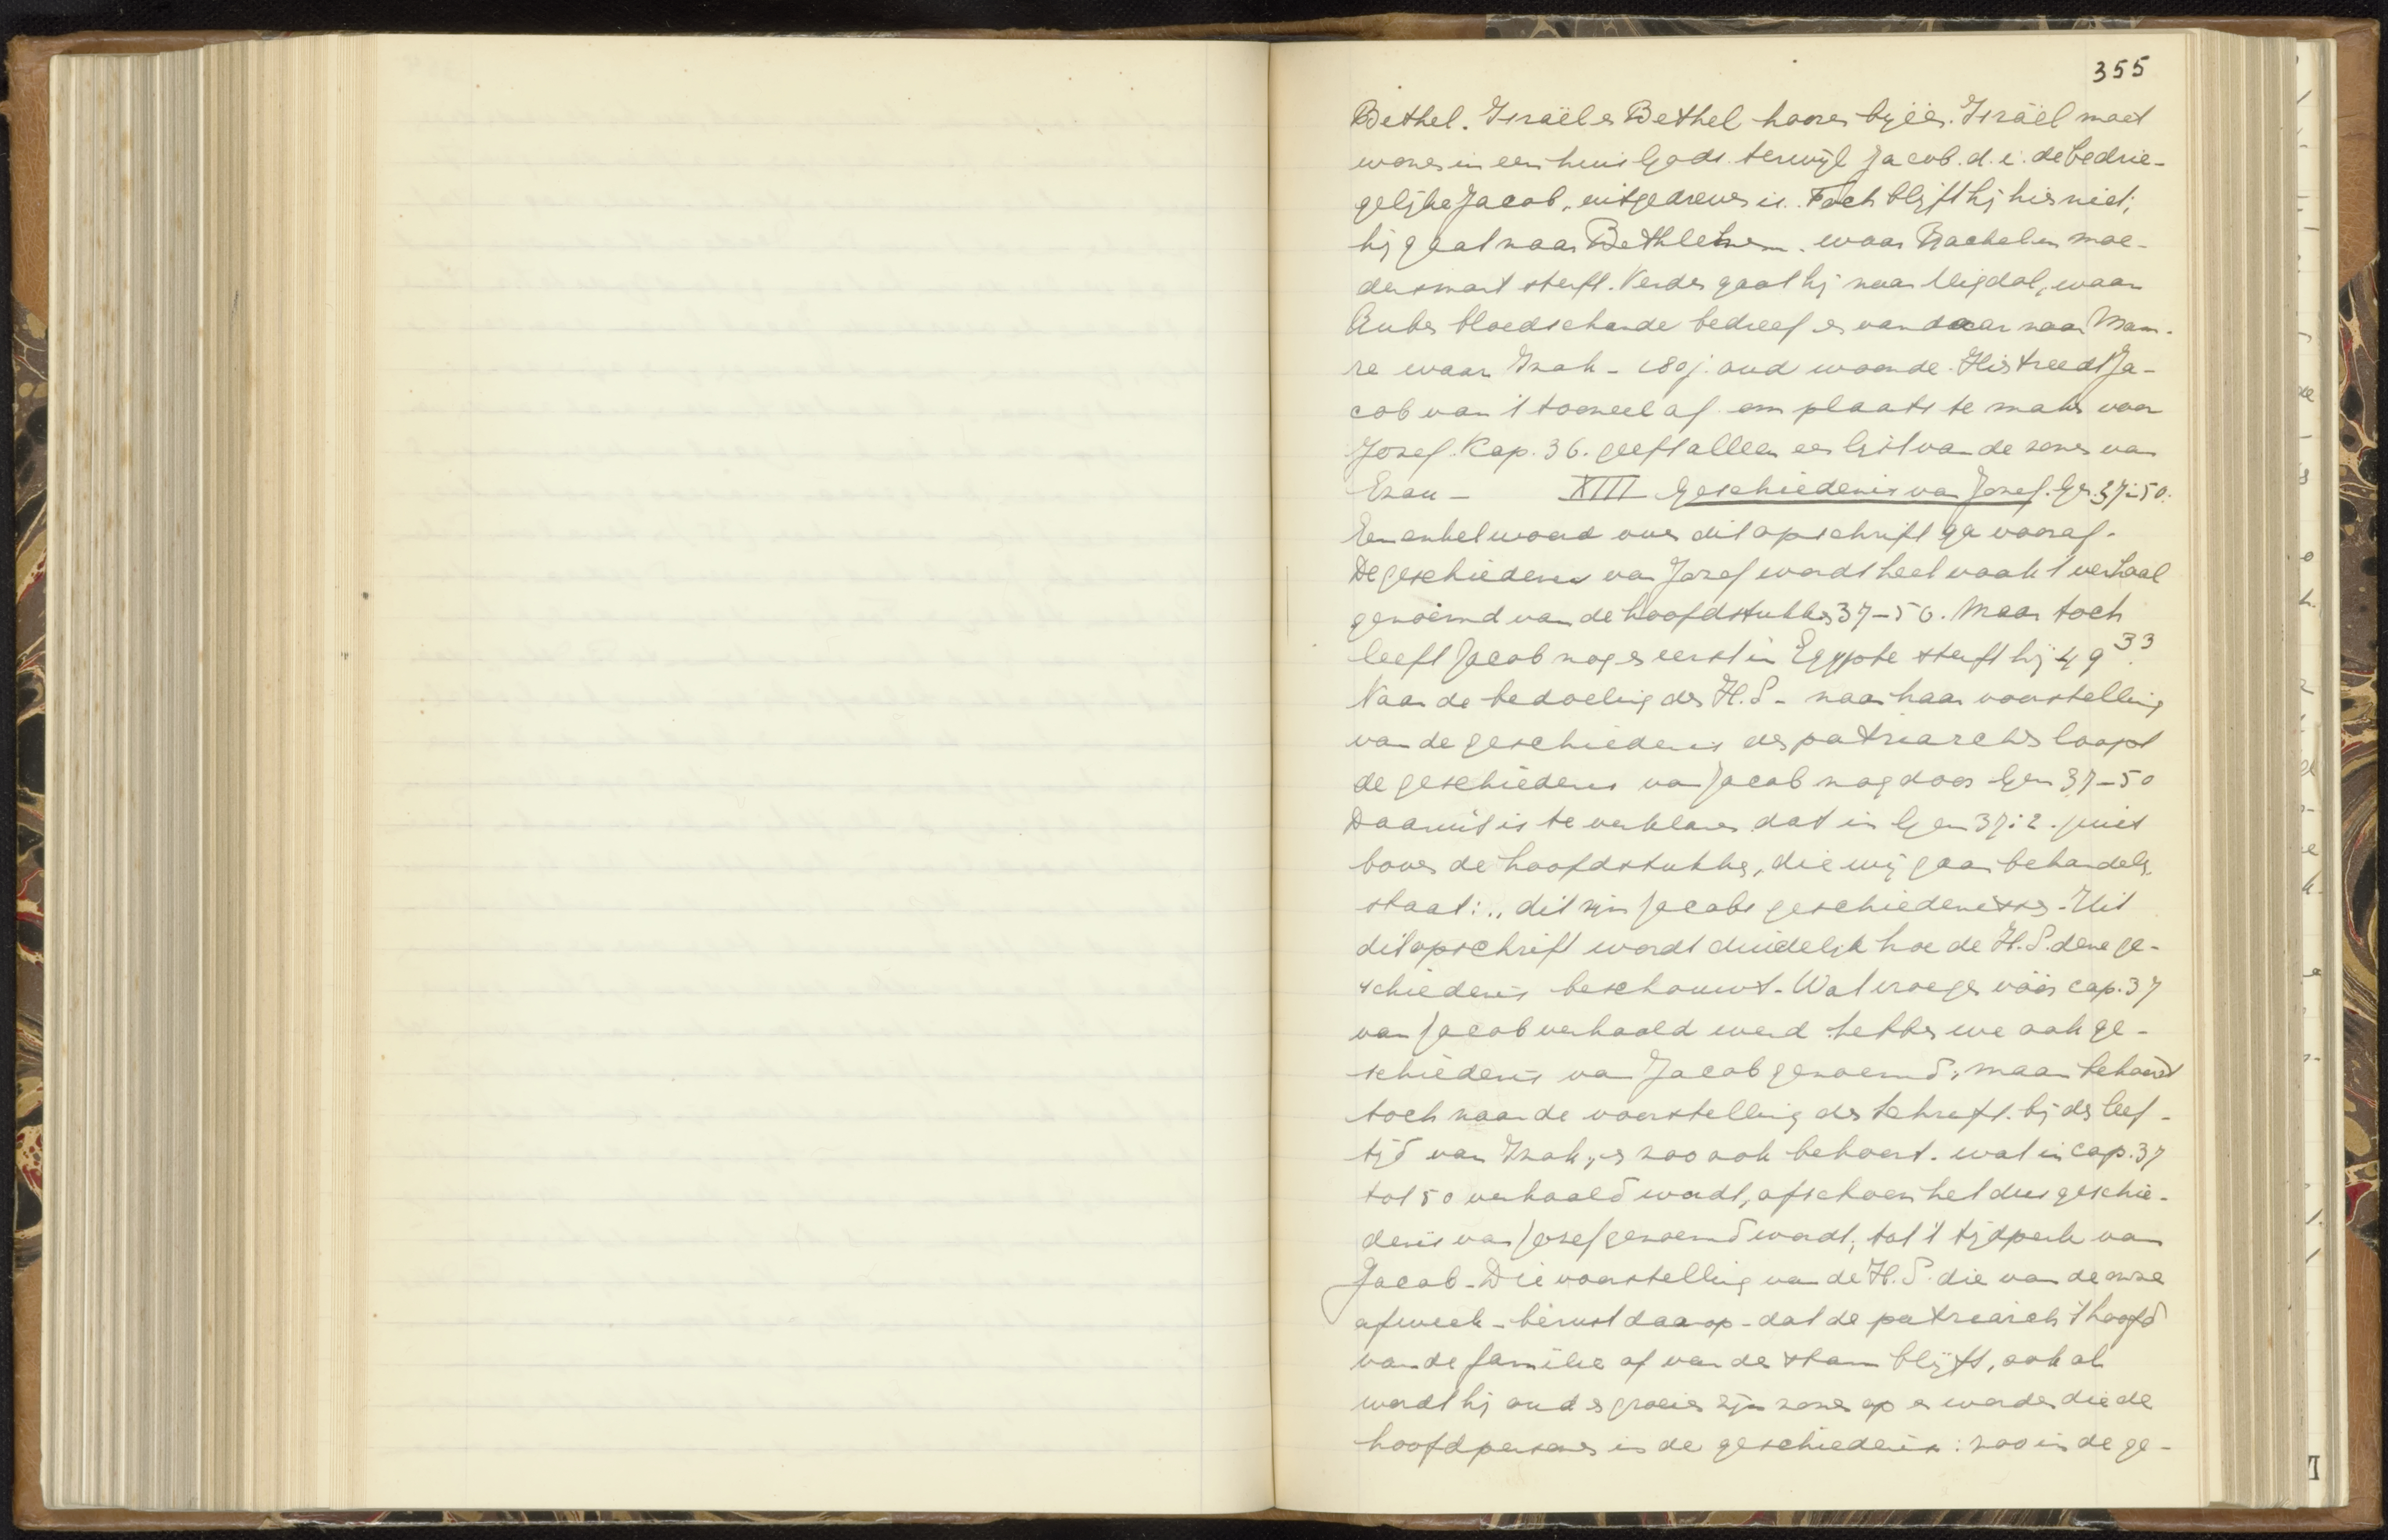 355
Bethel. Israël en Bethel hooren bijéén. Israël moet
wonen in een huis Gods. terwijl Jacob. d. i. de bedrie-
gelijke Jacob, uitgedreven is. Toch blijft hij hier niet;
hij gaat naar Bethlehem. waar Rachel in moe-
dersmart sterft. Verder gaat hij naar Migdal, waar
Ruben bloedschande bedreef en vandaar naar Mam-
re waar Izak - 180 j. oud woonde. Hier treedt Ja-
cob van 't tooneel af om plaats te maken voor
Jozef. Kap. 36. geeft alleen een lijst van de zonen van
Ezau - XIII Geschiedenis van Jozef. Gen. 37-50.
Een enkel woord over dit opschrift ga vooraf.
De geschiedenis van Jozef wordt heel vaak 't verhaal
genoemd van de hoofdstukken 37-50. Maar toch
leeft Jacob nog en eerst in Egypte sterft hij 49 33.
Naar de bedoeling der H.S. - naar haar voorstelling
van de geschiedenis der patriarchen loopt
de geschiedenis van Jacob nog door Gen 37-50
Daaruit is te verklaren dat in Gen 37:2. juist
boven de hoofdstukken, die wij gaan behandelen,
staat: „ dit zijn Jacobs geschiedenissen. Uit
dit opschrift wordt duidelijk hoe de H.S. deze ge-
schiedenis beschouwt. Wat vroeger vóór cap. 37
van Jacob verhaald werd hebben we ook ge-
schiedenis van Jacob genoemd, maar behoord
toch naar de voorstelling der Schrift. bij den leef-
tijd van Izak, en zoo ook behoort. wat in cap. 37
tot 50 verhaald wordt, ofschoon het dus geschie-
denis van Jozef genoemd wordt, tot 't tijdperk van
Jacob. Die voorstelling van de H.S. die van de onze
afweek - berust daarop - dat de patriarch 't hoofd
van de familie of van den stam blijft, ook al
wordt hij oud en groeien zijn zonen op en worden die de
hoofdpersonen in de geschiedenis: zoo in de ge-